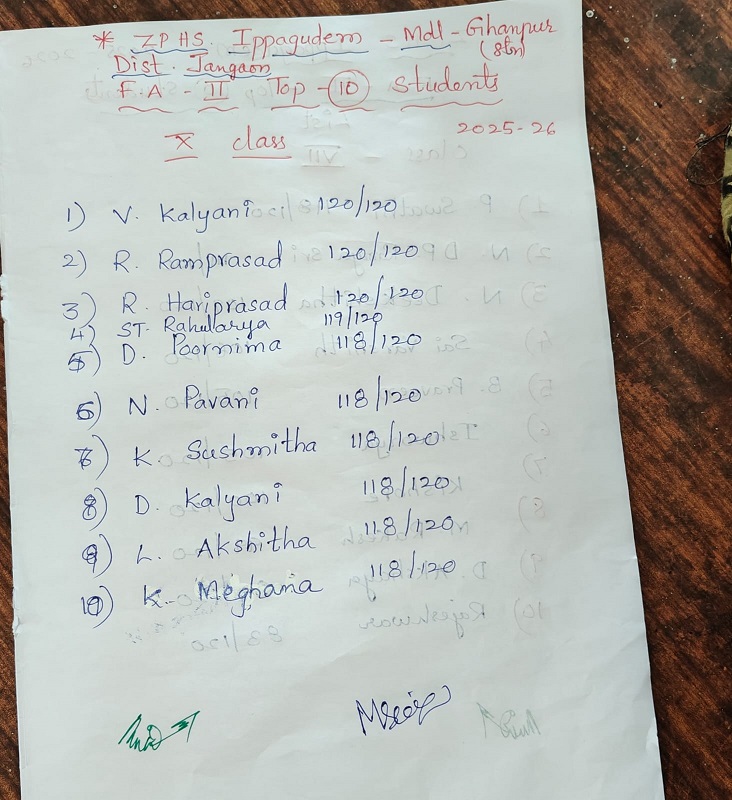 * ZPHS. Ippagudem - Mdl - Ghanpur
(stn)
Dist. Jangaon
F.A - II Top - 10 Students
X class 2025-26
1) V. Kalyani 120/120
2) R. Ramprasad 120/120
3) R. Hariprasad 120/120
4) ST. Rahularya 119/120
5) D. Poornima 118/120
6) N. Pavani 118/120
7) K. Sushmitha 118/120
8) D. Kalyani 118/120
9) L. Akshitha 118/120
10) K. Meghana 118/120